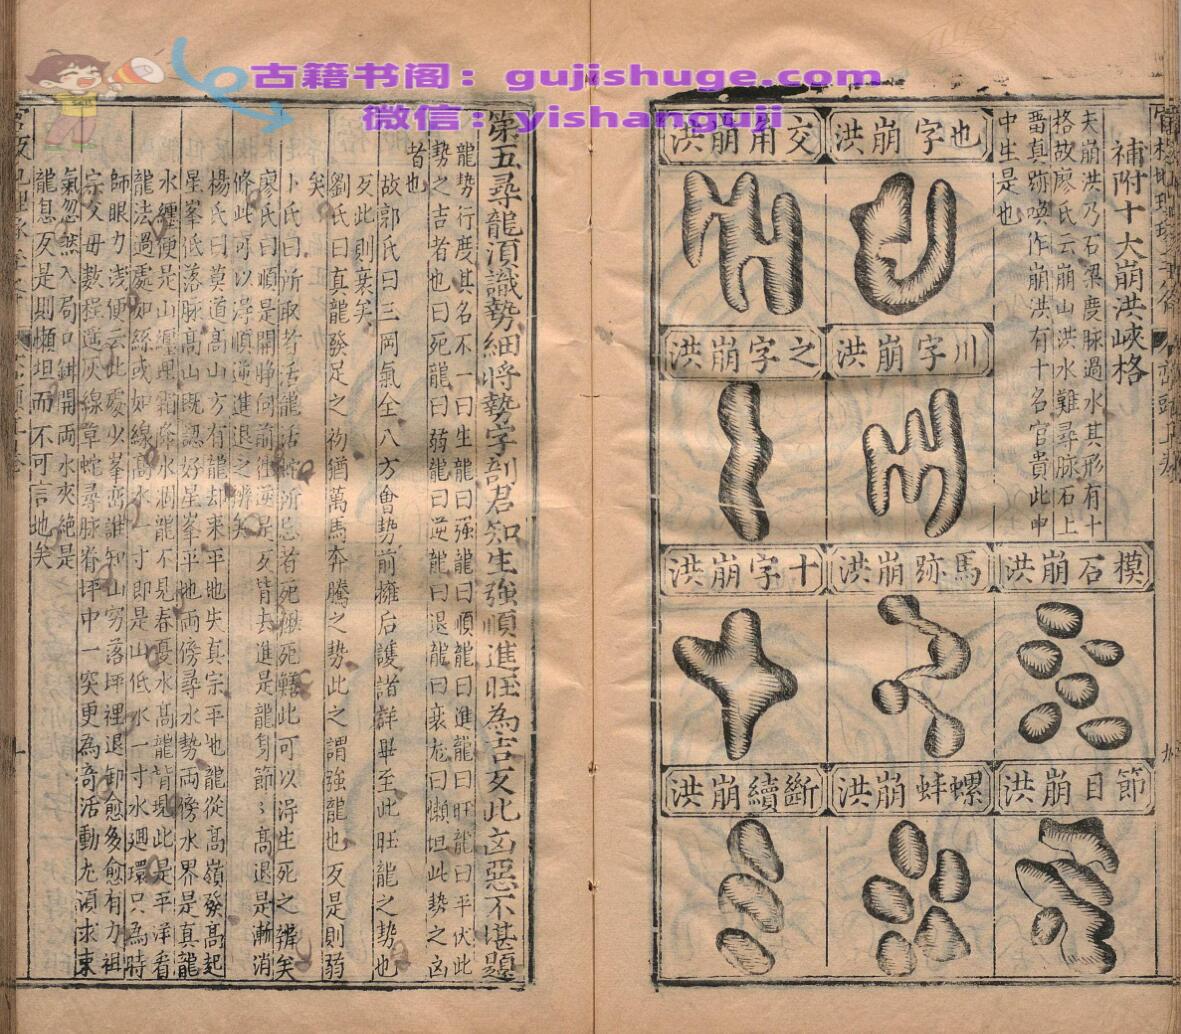 古籍书阁：gujishuge.com
微信：yishanguji
補附十大崩洪峽格
夫崩洪乃石梁度脉過水其形有十
格故廖氏云崩山洪水難尋脉石上
留真跡喚作崩洪有十名官貴此中
中生是也
也字崩洪
交角崩洪
川字崩洪
之字崩洪
模石崩洪
馬跡崩洪
十字崩洪
節目崩洪
螺蚌崩洪
斷續崩洪
第五尋龍湏識勢細將勢字剖君知生強順進旺為吉反此凶惡不堪題
龍勢行度其名不一曰生龍曰强龍曰順龍曰進龍曰旺龍曰平伏此
勢之吉者也曰死龍曰弱龍曰逆龍曰退龍曰衰龙曰懶坦此勢之凶
者也
故郭氏曰三岡氣全八方會勢前擁后護諸祥畢至此旺龍之勢也
反此則衰矣
劉氏曰真龍發足之初猶萬馬奔騰之勢此之謂強龍也反是則弱
矣
卜氏曰所取者活龍活蛇所忌者死鰍死鱔此可以淂生死之辨矣
廖氏曰順是開睁向前往逆是反背去進是龍身節〻高退是漸消
條此可以淂順逆進退之辨矣
楊氏曰莫道高山方有龍却来平地失真宗平地龍從高嶺發高起
星峯低落脉高山既認好星峯平地兩傍尋水勢兩傍水界是真龍
水纏便是山纏理霜降水涸龍不見春夏水高龍背現此是平洋看
龍法過處如絲或如線高水一寸即是山低水一寸水廻環只為時
師眼力浅便云此處少峯巒誰知山窮落坪裡退卸愈多愈有力祖
宗父母數程遙灰線草蛇尋脉脊坪中一突更為竒活動尢湏求束
氣忽然入局口鉗開兩水夾絶是
龍息反是則懶坦而不可言地矣